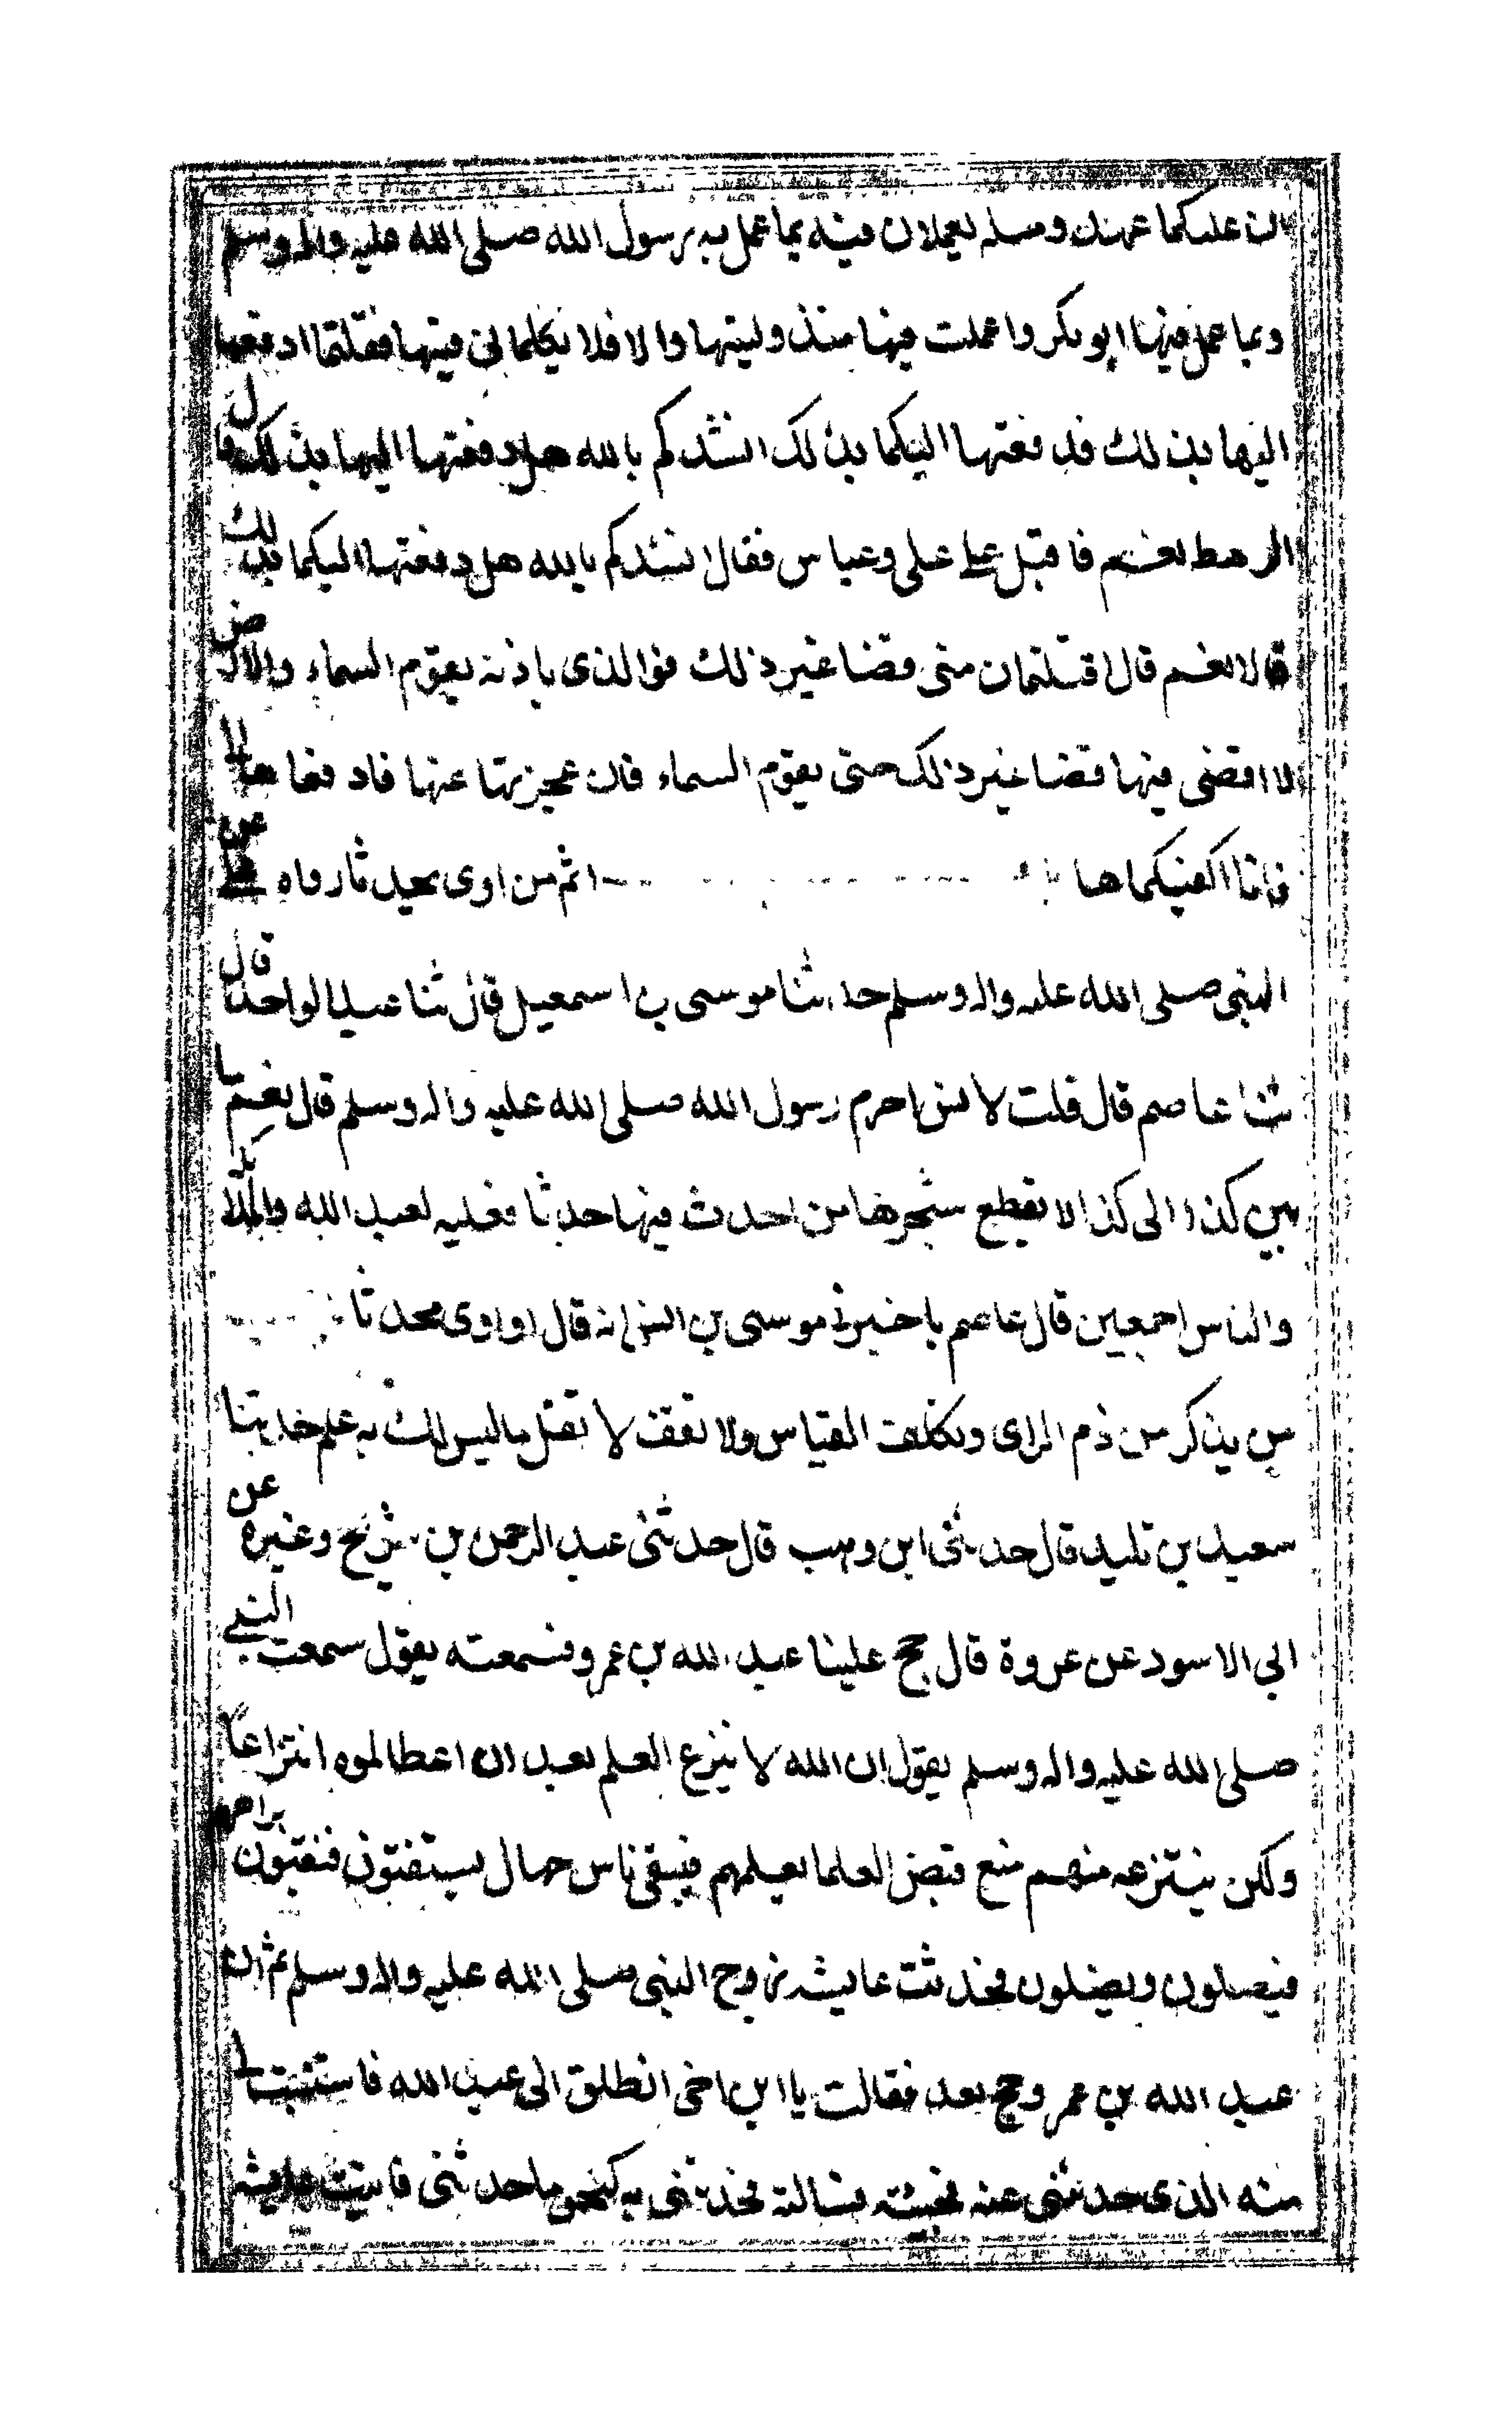 ان عليكما عهد الله وميثاقه لتعملان فيه بما عمل به رسول الله صلى الله عليه واله وسلم
وبما عمل فيها ابو بكر وا عملت فيها منذ وليتها والا فلا تكلماني فيها فقلتما ادفعها
اليها بذلك فدفعتها اليكما بذلك انشدكم بالله هل دفعتها اليهما بذلك قال
الرهط نعم فاقبل على علي وعباس فقال انشدكم بالله هل دفعتها اليكما بذلك
قالا نعم قال افتلتمسان منى قضا غير ذلك فوالذى باذنه تقوم السماء والارض
لا اقضى فيها قضا غير ذلك حتى تقوم السماء فان عجزتما عنها فادفعاها الى
فانا اكفيكماها اثم من اوى محدثا رواه على عن
النبى صلى الله عليه واله وسلم حدثنا موسى بن اسمعيل قال ثنا عبد الواحد قال
ثنا عاصم قال قلت لانس احرم رسول الله صلى الله عليه واله وسلم قال نعم ما
بين كذا الى كذا لا يقطع شجرها من احدث فيها حدثا فعليه لعبد الله والملائكة
والناس اجمعين قال عاصم باخبرنى موسى بن انس انه قال او اوى محدثا
من يذكر من ذم الراى وتكلف القياس ولا تقف لا تقل ما ليس لك به علم حدثنا
سعيد بن تليد قال حدثنى ابن وهب قال حدثنى عبد الرحمن بن شريح وغيره عن
ابى الاسود عن عروة قال حج علينا عبد الله بن عمرو فسمعته يقول سمعت النبى
صلى الله عليه واله وسلم يقول ان الله لا ينزع العلم بعد ان اعطا لموه انتزاعًا
ولكن ينتزعه منهم منع قبض العلما بعلمهم فيبقى ناس جهال يستفتون فيفتون برايهم
فيضلون ويضلون فحدثت عايشه زوج النبى صلى الله عليه واله وسلم ثم ان
عبد الله بن عمر وحج بعد فقالت يا ابن اختى انطلق الى عبد الله فاستثبت لى
منه الذى حدثنى عنه فجئته فسالته فحدثنى به كنحو ما حدثنى فاتيت عايشه